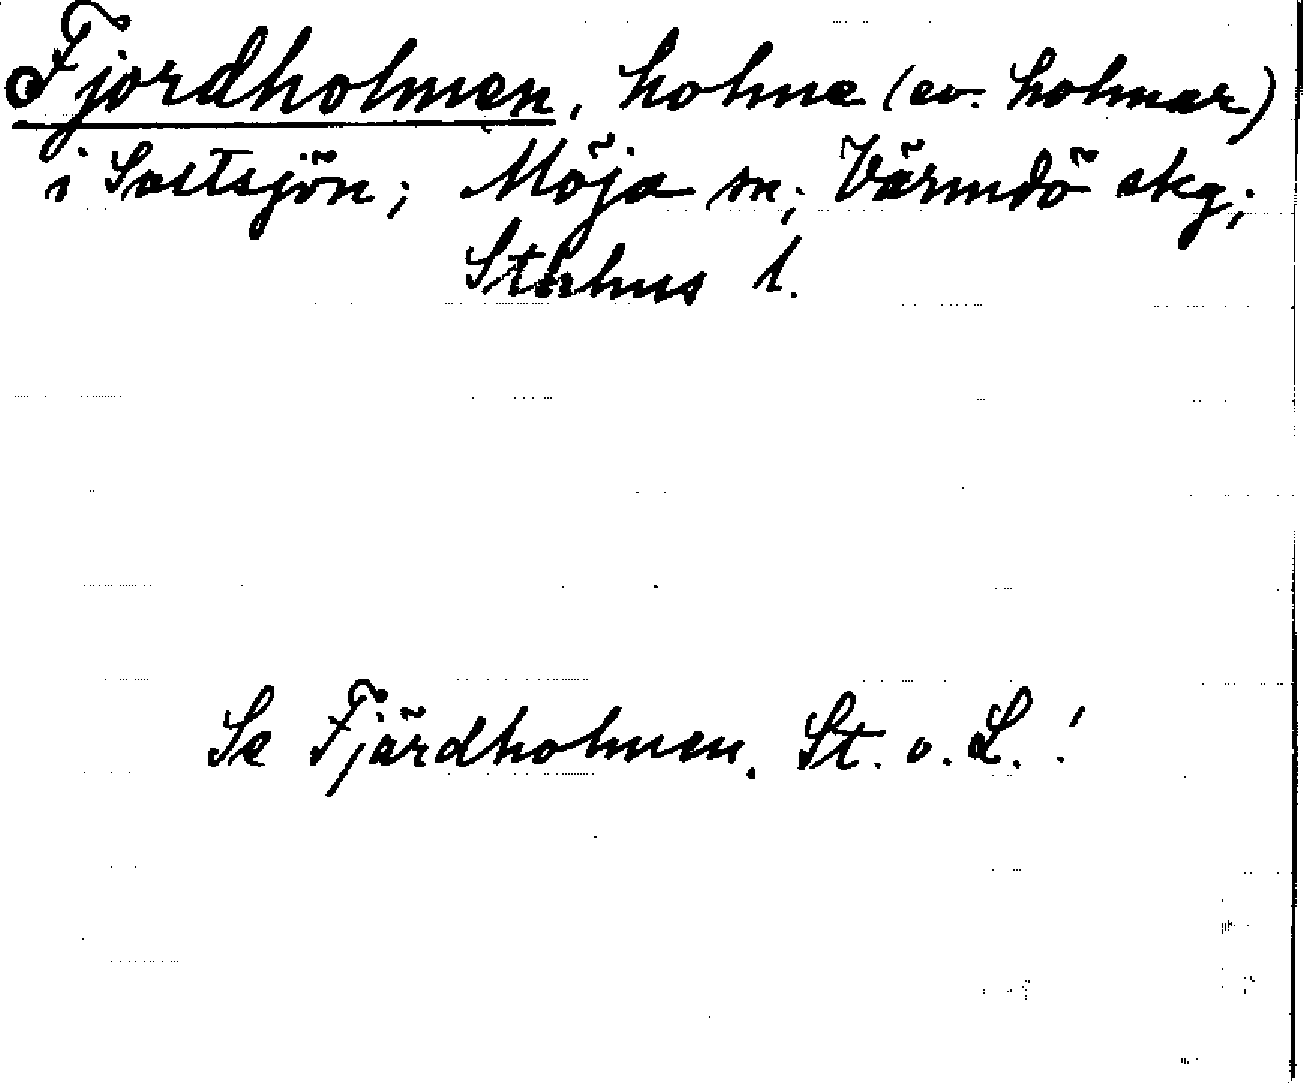 Fjordholmen, holme (ev. holmar)
i Saltsjön; Möja sn; Värmdö skg;
Sthlms l.
Se Fjärdholmen. St. o. L.!